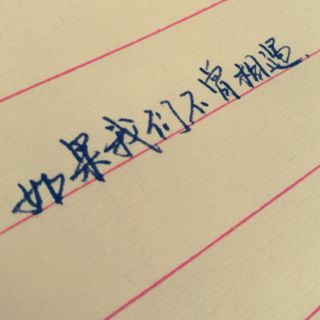 如果我们不曾相遇.